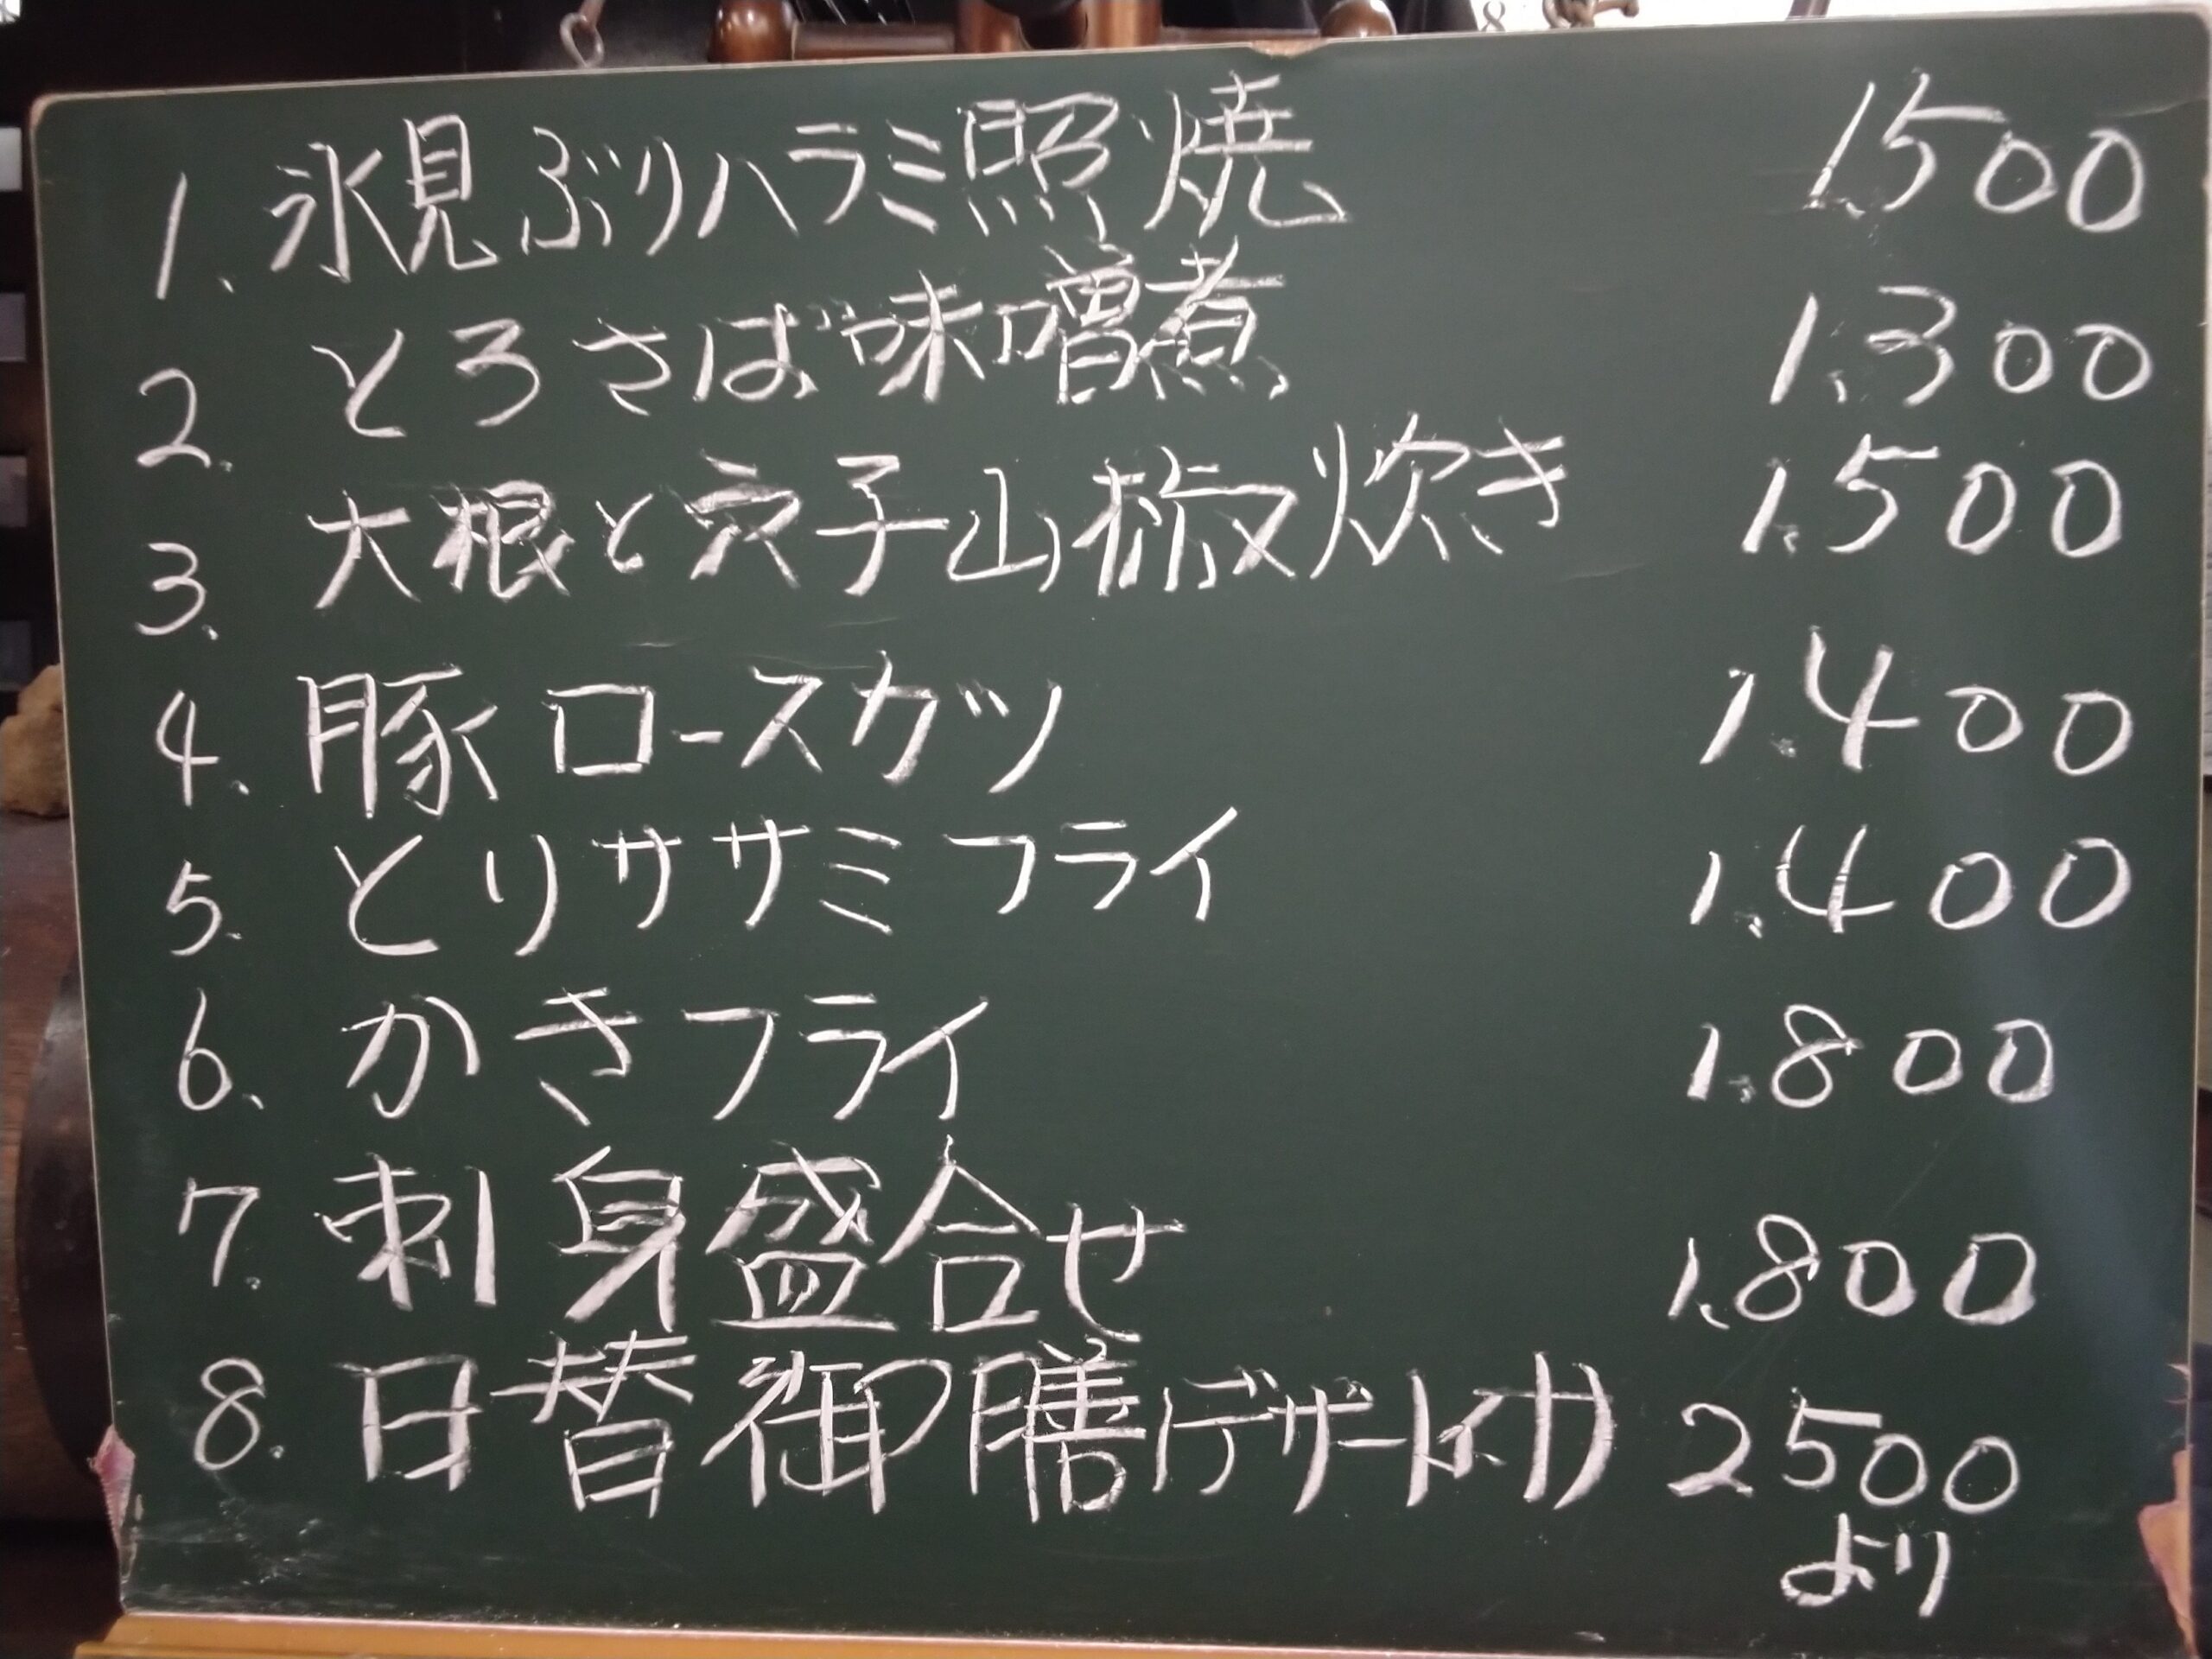 1. 氷見ぶりハラミ照焼 1.500
2. とろさば味噌煮 1.300
3. 大根と穴子山椒炊き 1.500
4. 豚ロースカツ 1.400
5. とりササミフライ 1.400
6. かきフライ 1.800
7. 刺身盛合せ 1.800
8. 日替御膳(デザート付) 2500
より